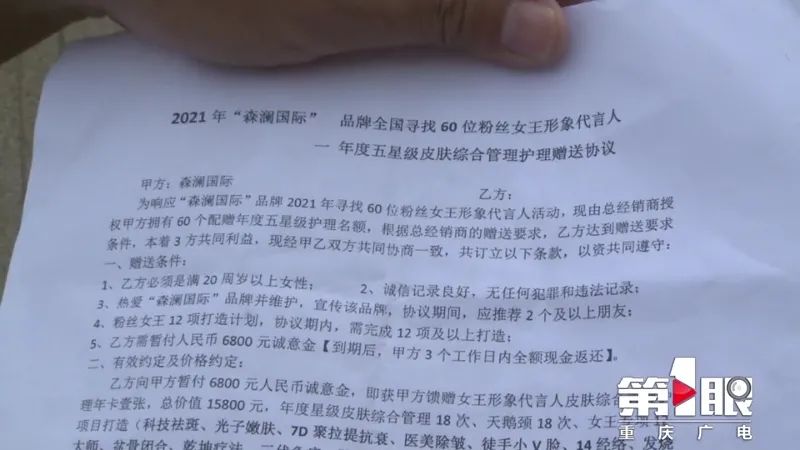 2021年“森澜国际” 品牌全国寻找60位粉丝女王形象代言人
一 年度五星级皮肤综合管理护理赠送协议
甲方：森澜国际 乙方：
为响应“森澜国际”品牌2021年寻找60位粉丝女王形象代言人活动，现由总经销商授
权甲方拥有60个配赠年度五星级护理名额，根据总经销商的赠送要求，乙方达到赠送要求
条件，本着3方共同利益，现经甲乙双方共同协商一致，共订立以下条款，以资共同遵守：
一、赠送条件：
1、乙方必须是满20周岁以上女性； 2、诚信记录良好，无任何犯罪和违法记录；
3、热爱“森澜国际”品牌并维护，宣传该品牌，协议期间，应推荐2个及以上朋友；
4、粉丝女王12项打造计划，协议期内，需完成12项及以上打造；
5、乙方需暂付人民币6800元诚意金【到期后，甲方3个工作日内全额现金返还】。
二、有效约定及价格约定：
乙方向甲方暂付6800元人民币诚意金，即获甲方馈赠女王形象代言人皮肤综合
理年卡壹张，总价值15800元，年度星级皮肤综合管理18次、天鹅颈18次、女王
项目打造（科技祛斑、光子嫩肤、7D聚拉提抗衰、医美除皱、徒手小V脸、14经络、发烧
大师、盆骨闭合、乾坤疗法、
第1眼
重庆广电